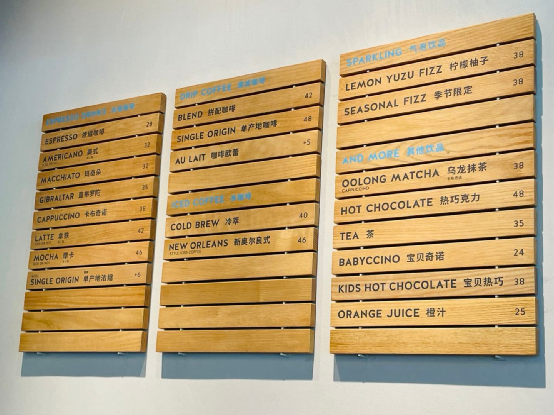 ESPRESSO 浓缩咖啡 28
AMERICANO 美式 32
MACCHIATO 玛奇朵 32
GIBRALTAR 直布罗陀 35
CAPPUCCINO 卡布奇诺 38
LATTE 拿铁 42
MOCHA 摩卡 46
SINGLE ORIGIN 单产地浓缩 +5
DRIP COFFEE 滴滤咖啡
BLEND 拼配咖啡 42
SINGLE ORIGIN 单产地咖啡 48
AU LAIT 咖啡欧蕾 +5
ICED COFFEE 冰咖啡
COLD BREW 冷萃 40
NEW ORLEANS 新奥尔良式 46
STYLE ICED COFFEE
SPARKLING 气泡饮品
LEMON YUZU FIZZ 柠檬柚子 38
SEASONAL FIZZ 季节限定 38
AND MORE 其他饮品
OOLONG MATCHA 乌龙抹茶 38
CAPPUCCINO
HOT CHOCOLATE 热巧克力 48
TEA 茶 35
BABYCCINO 宝贝奇诺 24
KIDS HOT CHOCOLATE 宝贝热巧 38
ORANGE JUICE 橙汁 25